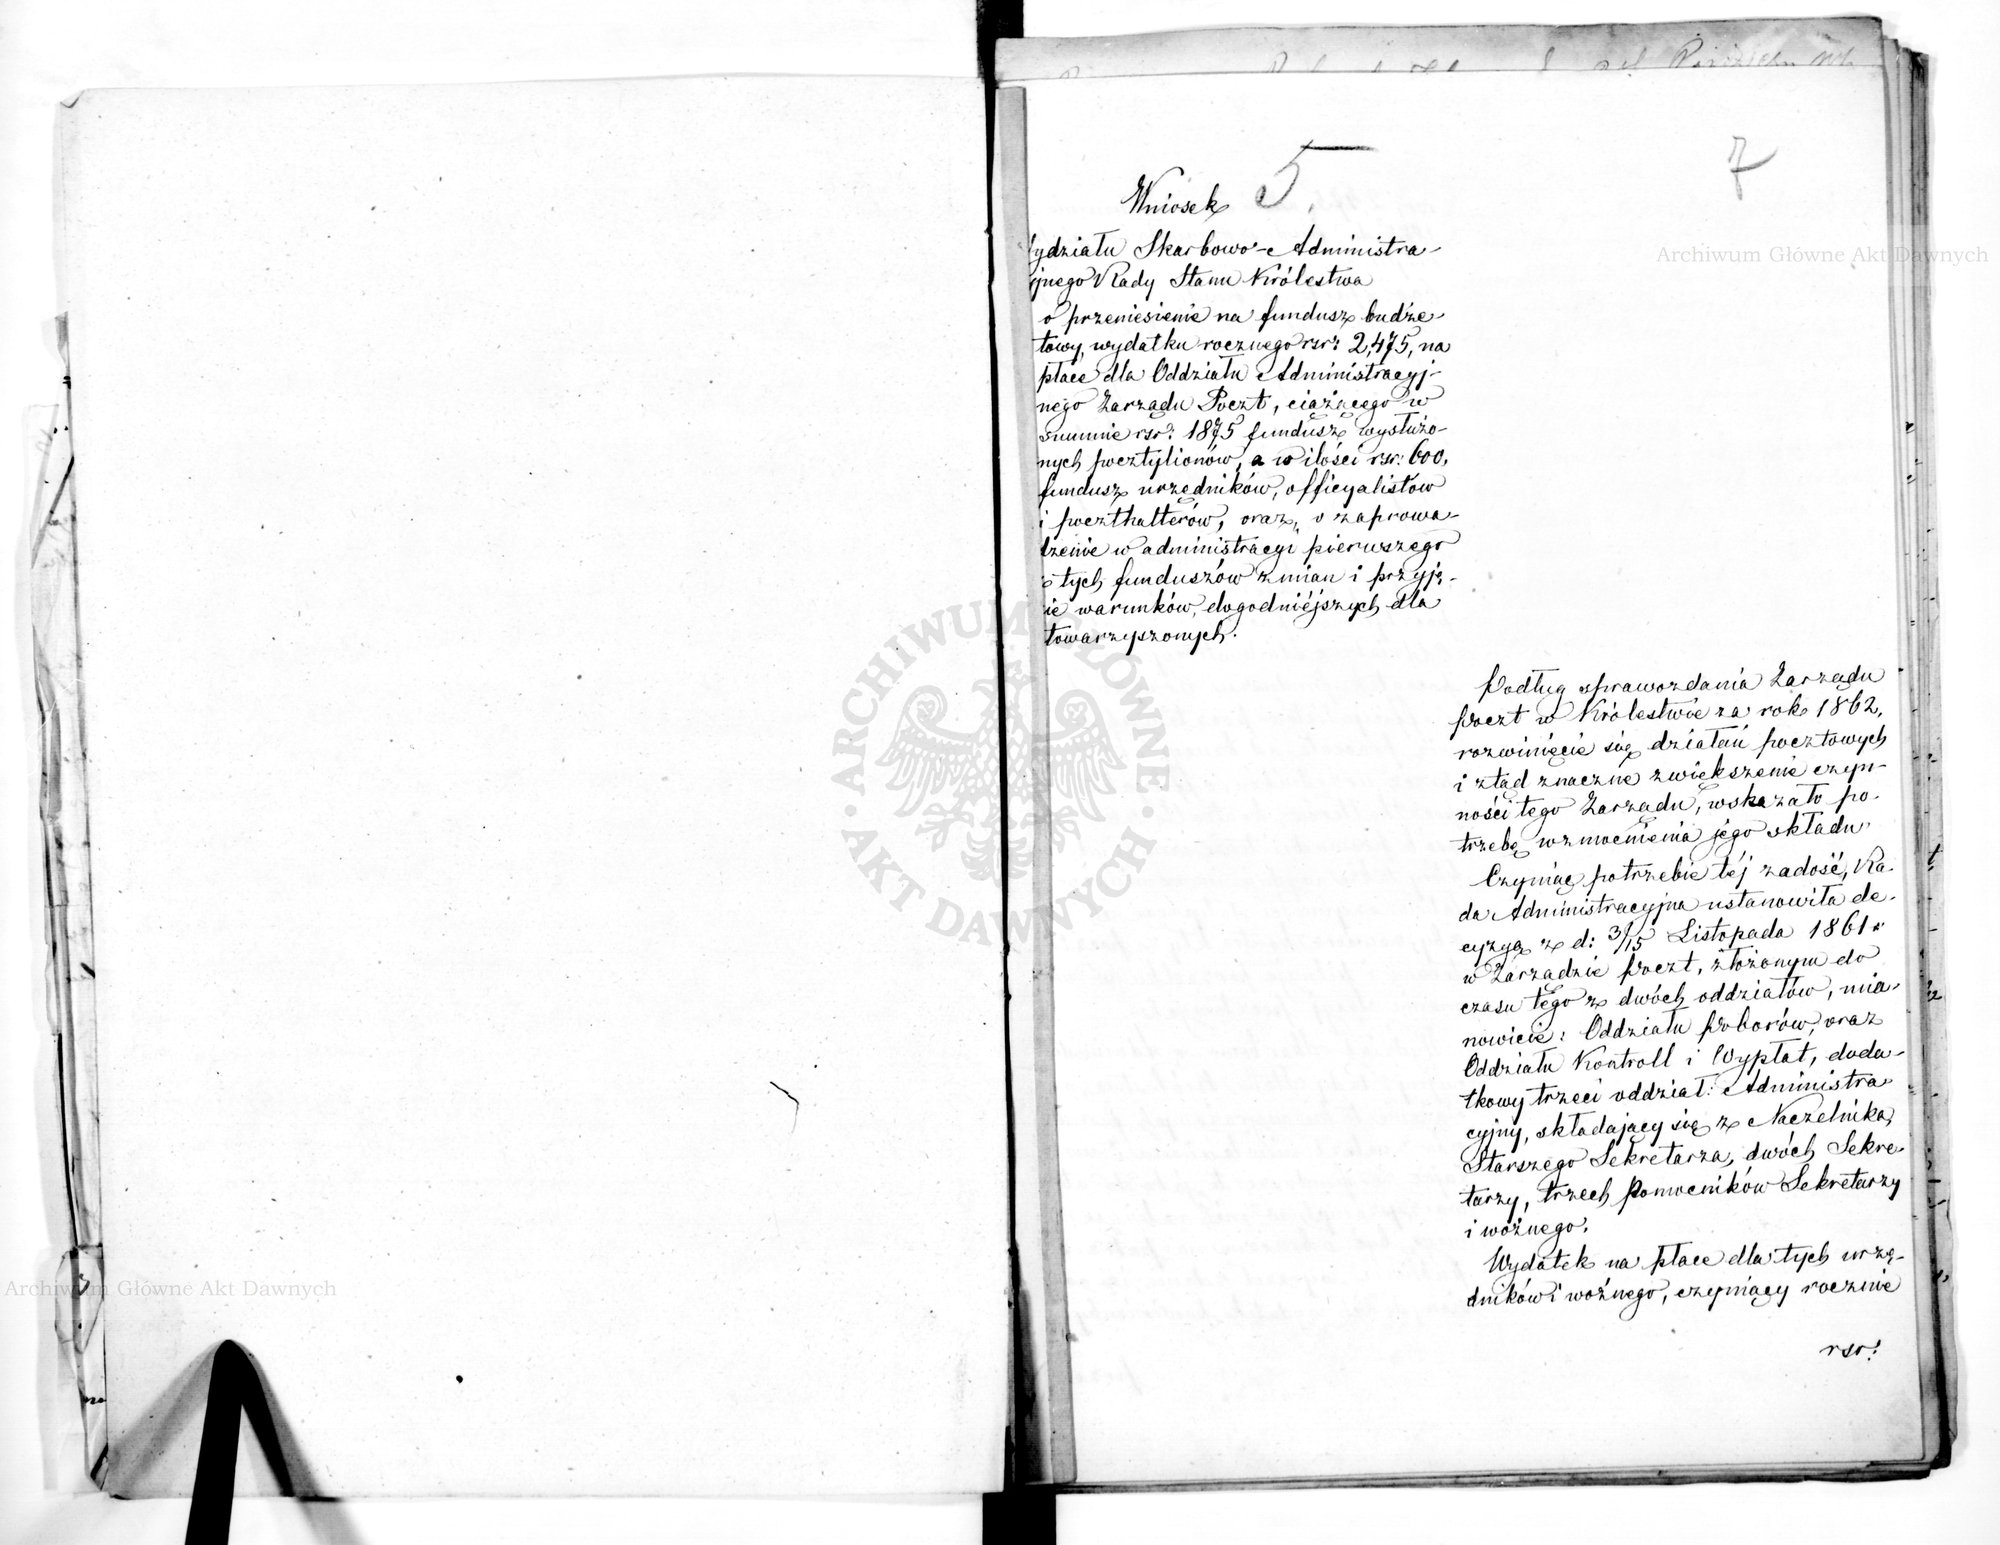 7
5
Wniosek
ydziału Skarbowo-Administra-
jnego Rady Stanu Królestwa
o przeniesienie na fundusz budże-
towy, wydatku rocznego rsr: 2,475, na
płace dla Oddziału Administracyj-
nego Zarządu Poczt, ciążącego w
summie rsr: 1875 fundusz wysłużo-
nych pocztylionów, a w ilości rsr: 600,
fundusz urzędników, officyalistów
i poczthalterów, oraz, o zaprowa-
dzenie w administracyi pierwszego
z tych funduszów zmian i przyję-
cie warunków, dogodniejszych dla
towarzyszonych.
Podług sprawozdania Zarządu
Poczt w Królestwie za rok 1862,
rozwinięcie się działań pocztowych
i ztąd znaczne zwiększenie czyn-
ności tego Zarządu, wskazało po-
trzebę wzmocnienia jego składu.
Czyniąc potrzebie téj zadość, Ra-
da Administracyjna ustanowiła de-
cyzyą z d: 3/15 Listopada 1861 r.
w Zarządzie Poczt, złożonym do
czasu tego z dwóch oddziałów, mia-
nowicie: Oddziału Poborów, oraz
Oddziału Kontroll i Wypłat, doda-
tkowy trzeci oddział: Administra-
cyjny, składający się z Naczelnika,
Starszego Sekretarza, dwóch Sekre-
tarzy, trzech Pomocników Sekretarzy
i woźnego.
Wydatek na płace dla tych urzę-
dników i woźnego, czyniący rocznie
rsr:
Archiwum Główne Akt Dawnych
Archiwum Główne Akt Dawnych
ARCHIWUM GŁÓWNE · AKT DAWNYCH ·